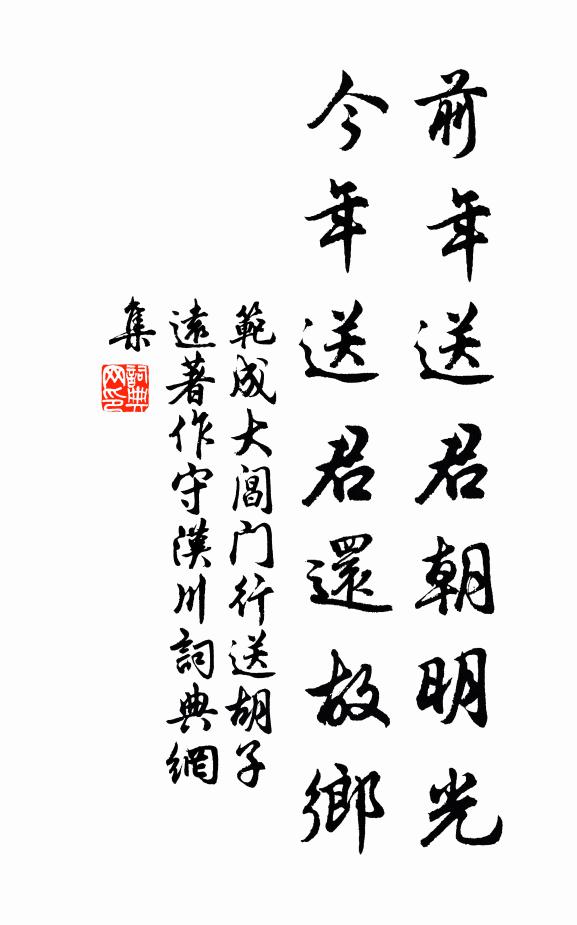 前年送君朝明光
今年送君還故鄉
範成大閶門行送胡子
遠著作守漢川詞典網
集
詞典
网印